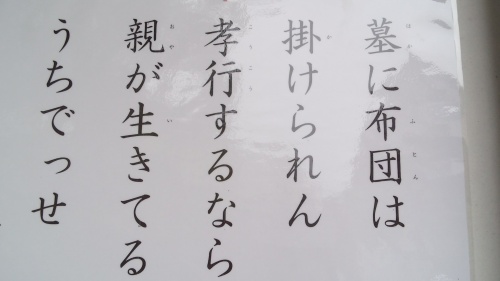 墓に布団は
掛けられん
孝行するなら
親が生きてる
うちでっせ